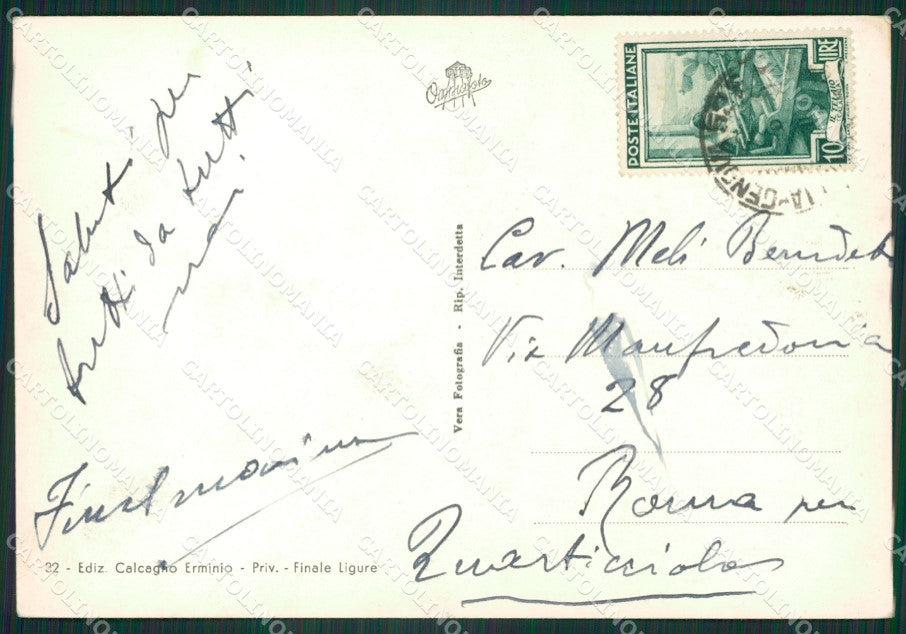 Saluti per
tutti da tutti
noi
Finalmarina
32 - Ediz. Calcagno Erminio - Priv. - Finale Ligure
Vera Fotografia - Rip. Interdetta
POSTE ITALIANE
LIRE
10
Cav. Meli Benedet
Via Manfredonia
28
Roma per
Quarticciolo
CARTOLINOMANIA